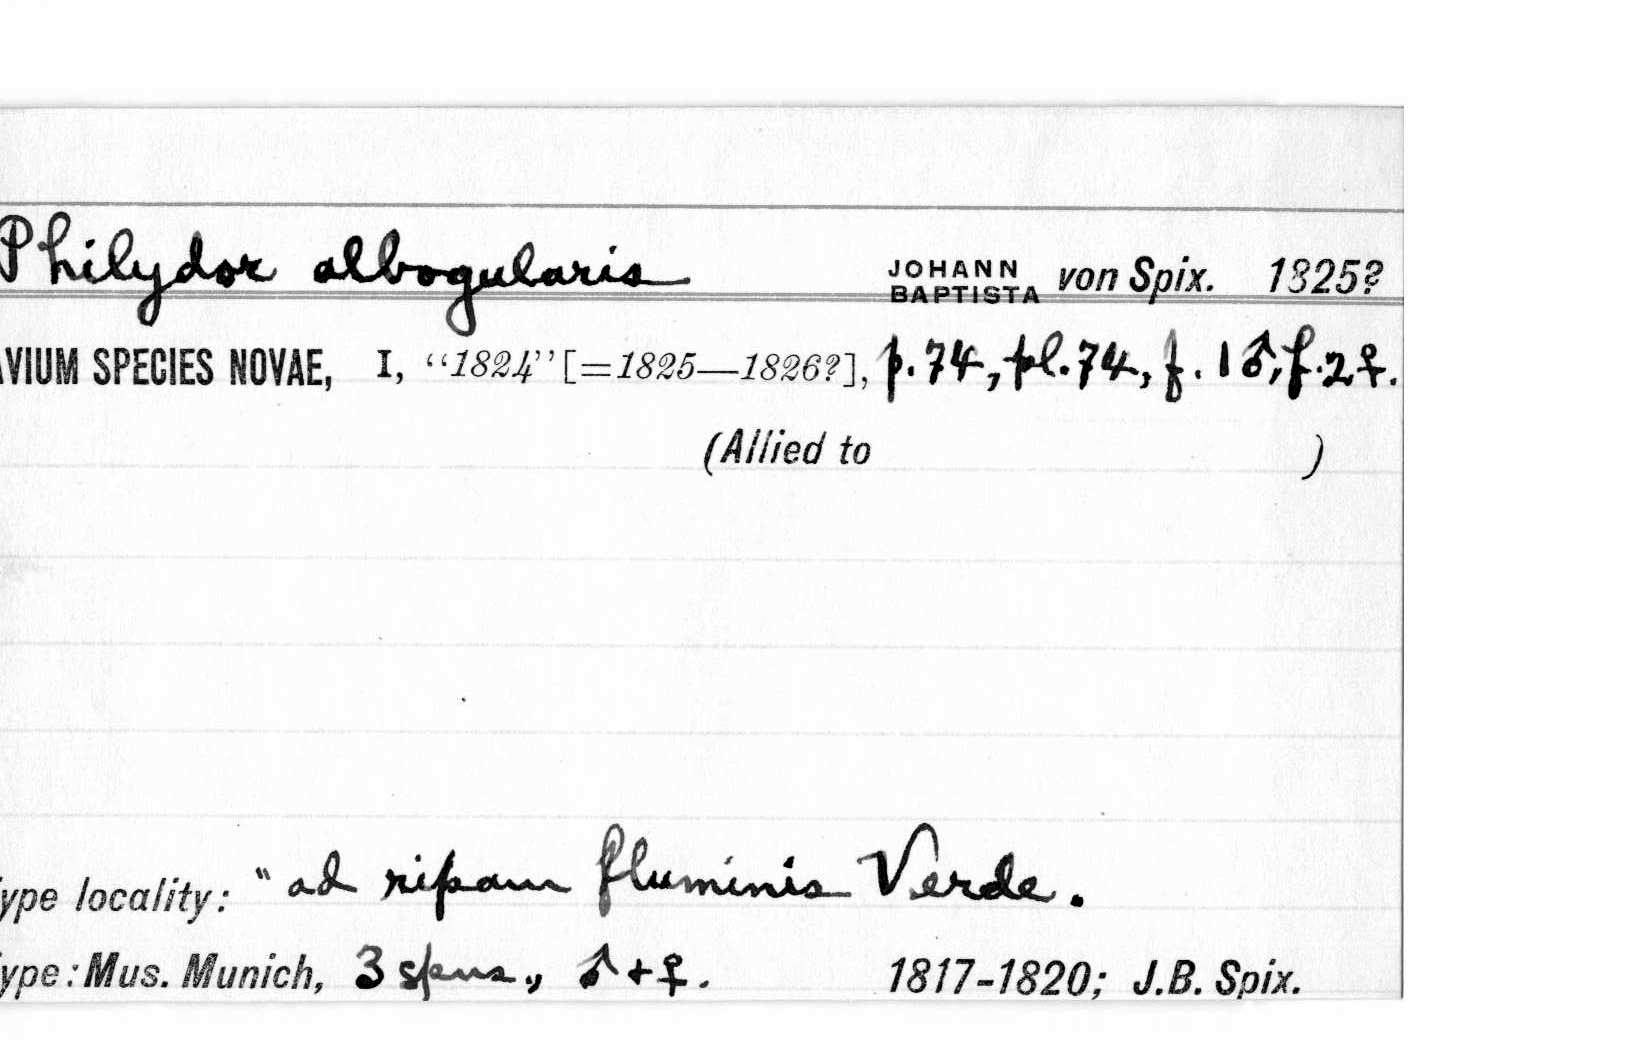 Philydor albogularis JOHANN BAPTISTA von Spix. 1825?
AVIUM SPECIES NOVAE, I, “1824” [=1825—1826?], p.74, pl.74, f. 1♂, f.2♀.
(Allied to )
ype locality: " ad ripam fluminis Verde.
ype: Mus. Munich, 3 spms., ♂+♀. 1817-1820; J.B. Spix.